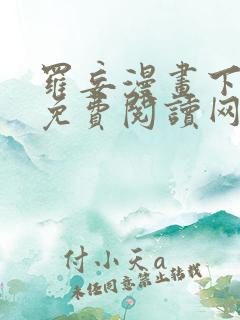 羅妄漫畫下
免費閱讀网
付小天a
未經同意禁止轉載